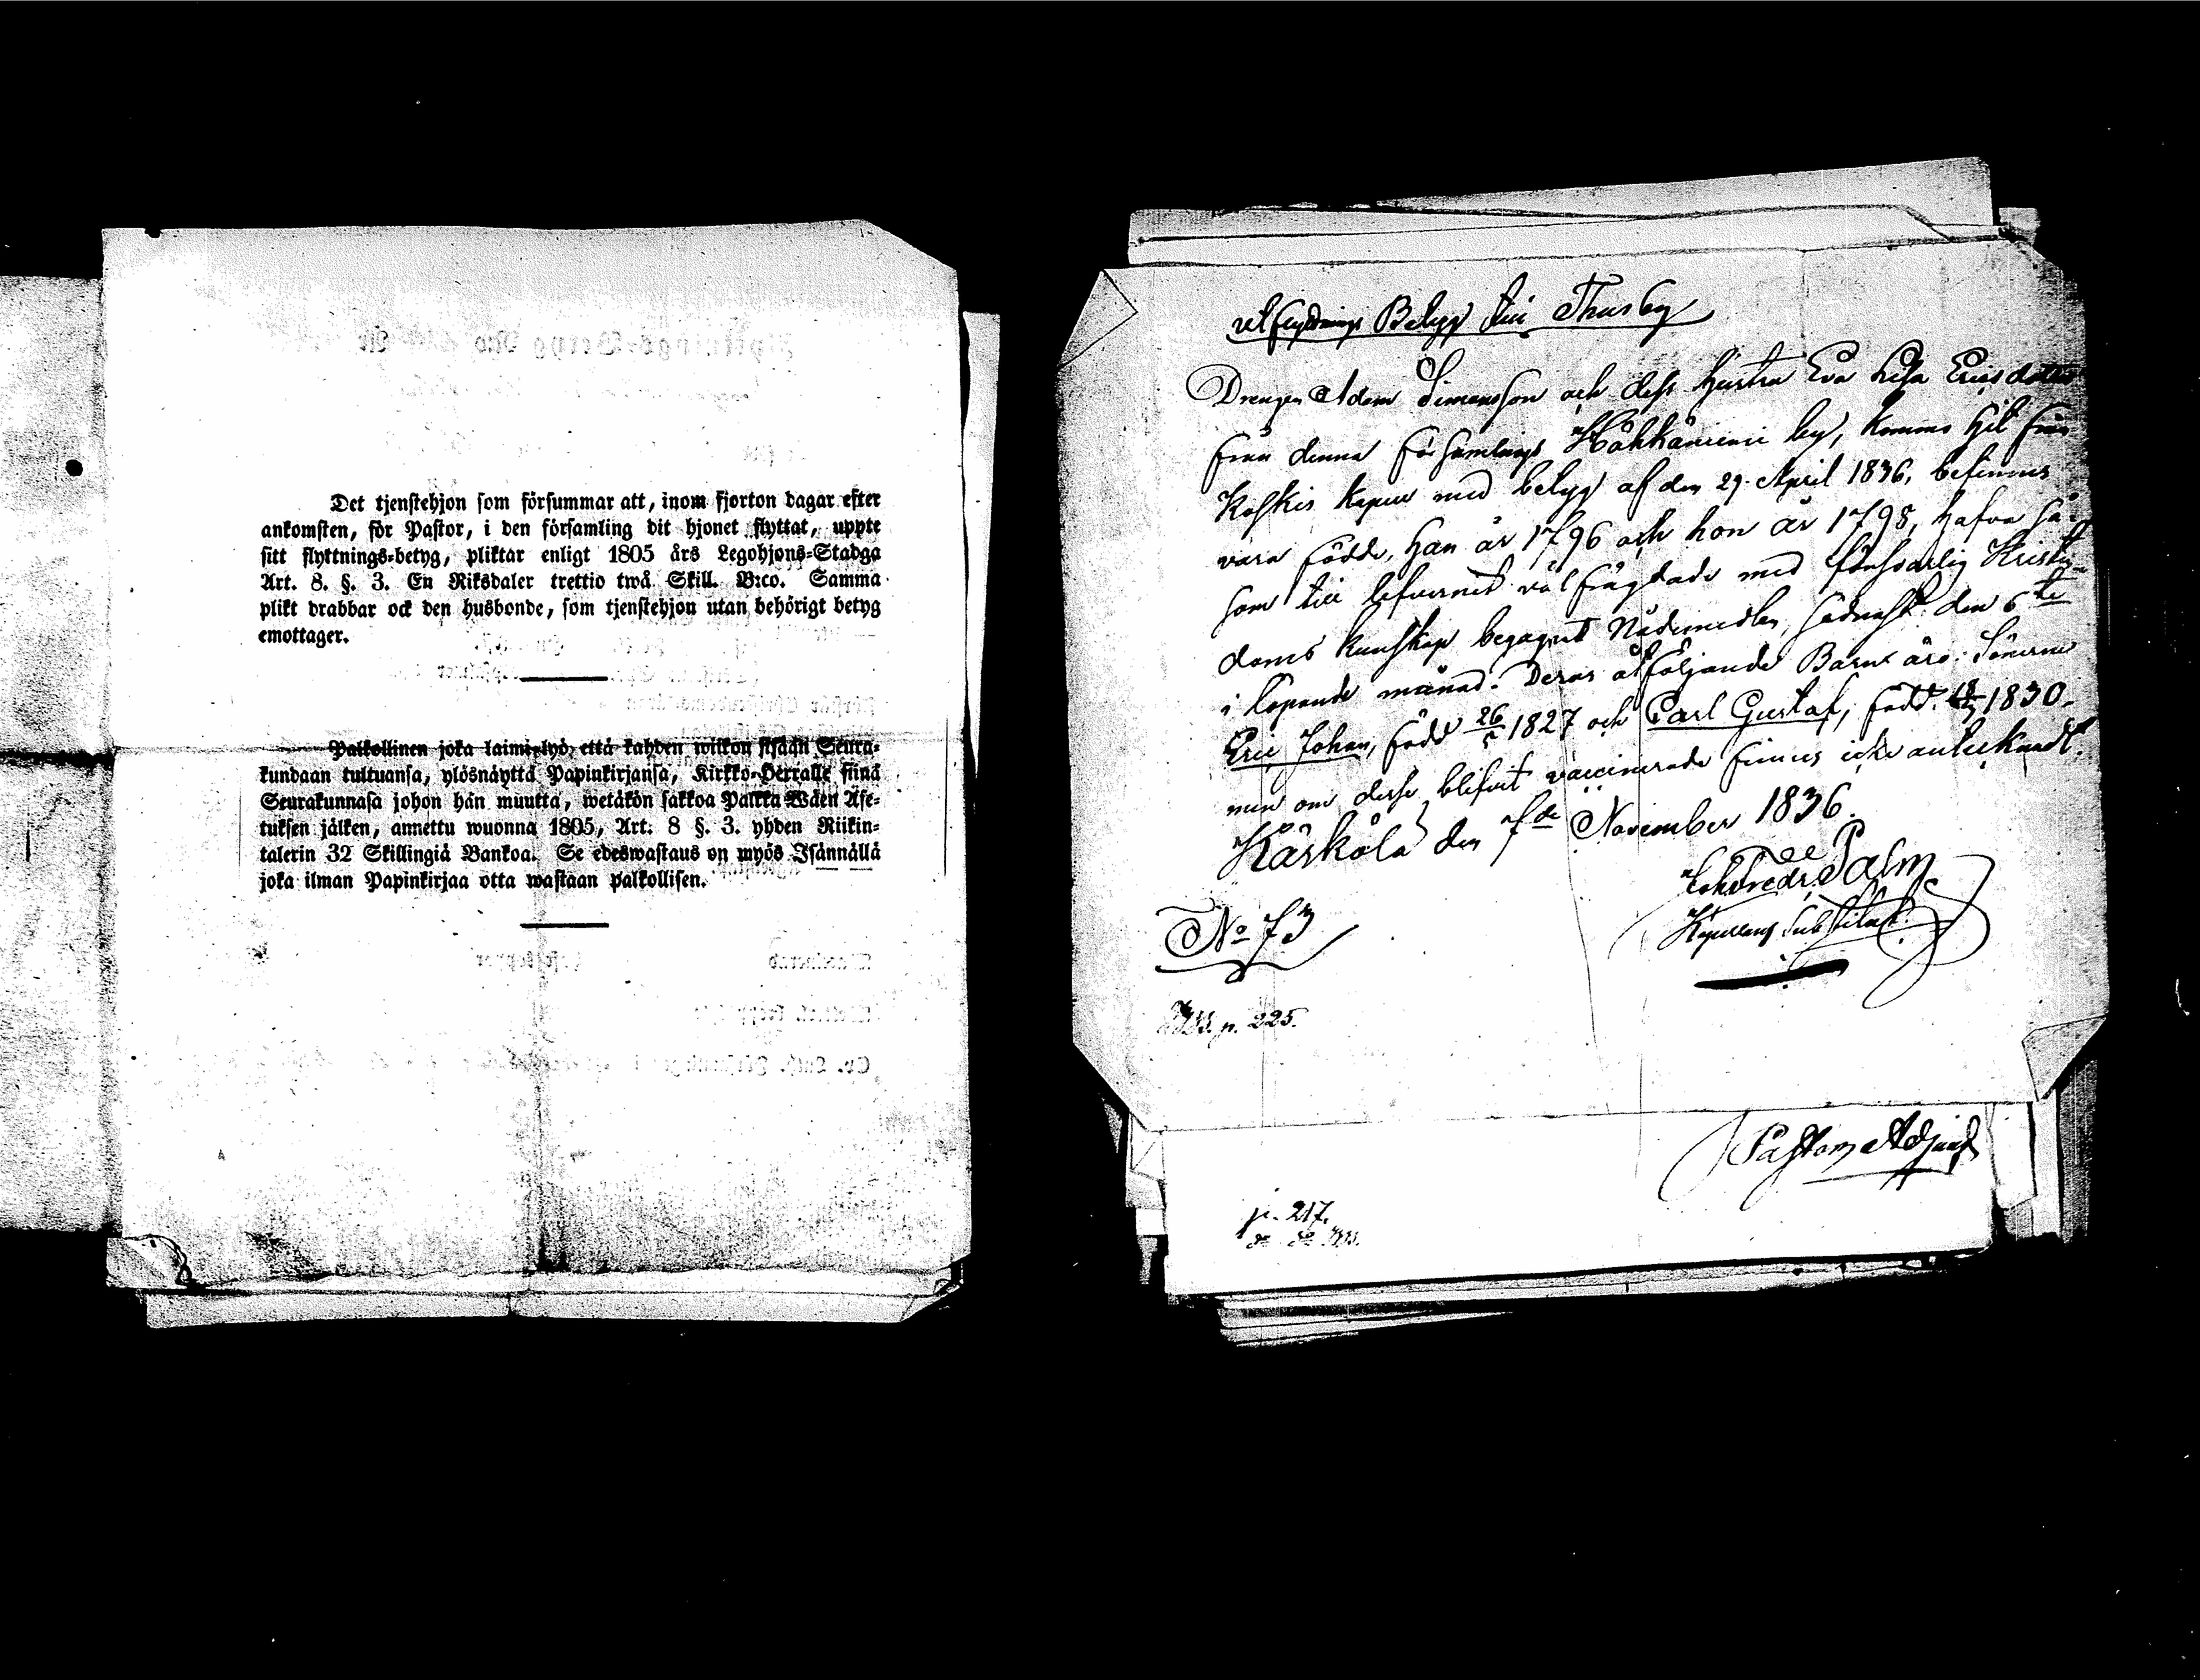 Det tjenstehjon som försummar att, inom fjorton dagar efter
ankomsten, för Pastor, i den församling dit hjonet flyttat, uppte
sitt flyttnings-betyg, pliktar enligt 1805 års Legohjons-Stadga
Art. 8. §. 3. En Riksdaler trettio twå Skill. B:co. Samma
plikt drabbar ock den husbonde, som tjenstehjon utan behörigt betyg
emottager.
Palkollinen joka laimi-lyö, että kahden wiikon sisään Seura-
kundaan tultuansa, ylösnäyttä Papinkirjansa, Kirkko-Herralle siinä
Seurakunnasa johon hän muutta, wetäkön sakkoa Palkka Wäen Ase-
tuksen jälken, annettu wuonna 1805, Art. 8 §. 3. yhden Riikin-
talerin 32 Skillingiä Bankoa. Se edeswastaus on myös Isännällä
joka ilman Papinkirjaa otta wastaan palkollisen.
utflyttnings Betyg till Thusby
Drengen Adam Simonsson och dess hustru Eva Lisa Ericsdotter
från denna församlings by, komne hit från
Koskis Kapell med betyg af den 29. April 1836, befinnes
vara födde, han år 1796 och hon år 1798, hafva så
som till lefvernet välfrägdade med försvarlig Kristen-
doms kunskap begagnat Nådemedlen, sednast den 6te
i löpande månad. Deras åtföljande Barn äro: Sönerne
Eric Johan, född 26/5 1827 och Carl Gustaf, född 1830.
men om desse blifvit vaccinerade finnes icke anteknadt.
Kärkölä den 7de November 1836.
Palm
Kapellans Substitut.
No 73
p. 225.
Pastors Adjunct
p. 217.